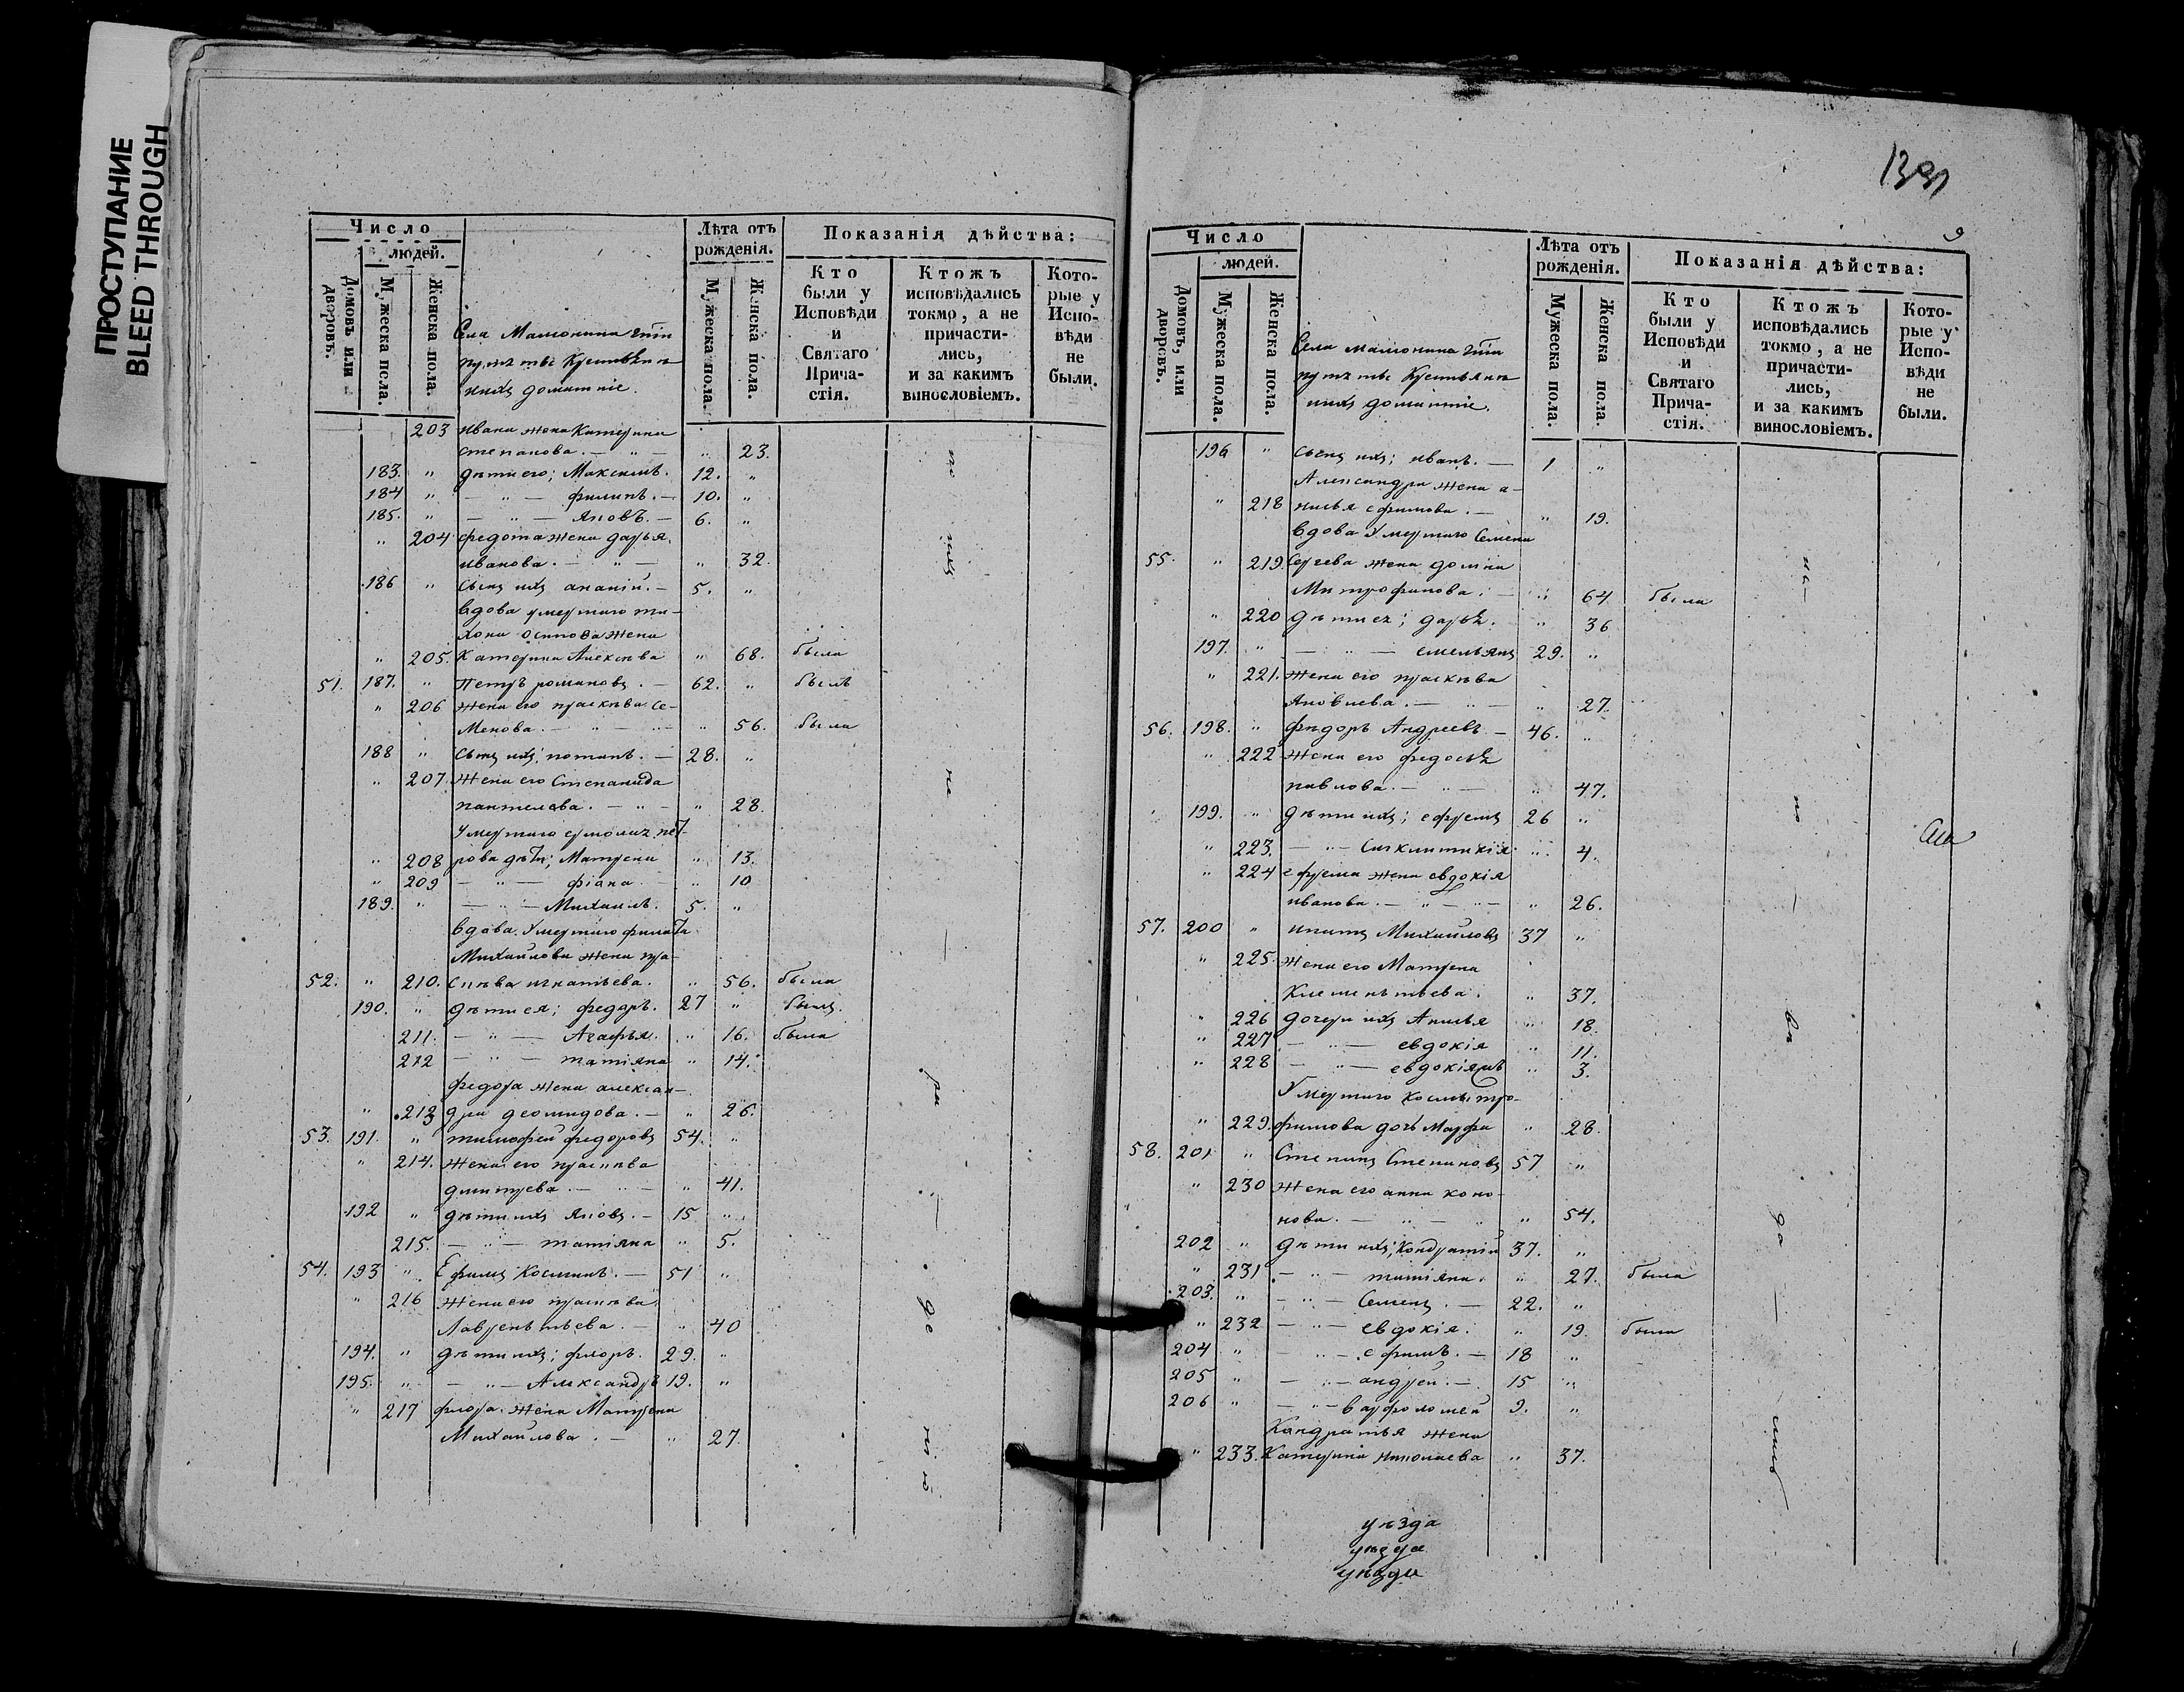 ПРОСТУПАНИЕ
BLEED THROUGH
Число
людей.
Домовъ или дворовъ.
Мужеска пола.
Женска пола.
Лѣта отъ рожденія.
Мужеска пола.
Женска пола.
Показанія дѣйства:
Кто были у Исповѣди и Святаго Причастія.
Ктожъ исповѣдались токмо, а не причастились, и за какимъ винословіемъ.
Которые у Исповѣди не были.
Села Мамонина
ихъ домашніе.
203 ивана жена Катерина
степанова. — " — " 23.
183. " дѣти его; Максимъ. 12. "
184 " — " — филипъ. — 10. "
185. " — " — яковъ. — 6. "
" 204 федота жена дарья
иванова. — " — " 32.
186 " сынъ ихъ ананій. — 5. "
вдова умершаго ти-
хона осипова жена
" 205. Катерина Алексѣва " 68. была
51. 187. " Петръ романовъ. — 62. " былъ
" 206 жена его праскѣва се-
менова. — " — " 56. была
188 " сынъ ихъ; потапъ. — 28. "
" 207. жена его Степанида
пантелева. — " — " 28.
умершаго ермолая пет-
" 208 рова дѣти; Матрена " 13.
" 209 — " — фіона — " 10
189. " — " — Михаилъ. 5. "
вдова умершаго филата
Михаилова жена пра-
52. " 210. скѣва игнатьева. " 56. была
190. " дѣти ея; федоръ. 27 " былъ.
211. — " — Агафья. " 16. была
212 — " — татіяна " 14.
федора жена алексан-
" 213 дра деомидова. — " 26.
53. 191. " тимофей федоровъ 54. "
" 214. жена его праскѣва
дмитрева. — " — " 41.
192 " дѣти ихъ яковъ. — 15 "
215. — " — татіяна " 5.
54. 193 " Ефимъ Косминъ. — 51 "
" 216 жена его праскѣва
Лаврентьева. — " 40
194. " дѣти ихъ; флоръ. 29. "
195. " — " — Александръ 19. "
" 217 флора жена Матрена
Михаилова. — " 27.
9
Число
людей.
Домовъ, или дворовъ.
Мужеска пола.
Женска пола.
Лѣта отъ рожденія.
Мужеска пола.
Женска пола.
Показанія дѣйства:
Кто были у Исповѣди и Святаго Причастія.
Ктожъ исповѣдались токмо, а не причастились, и за какимъ винословіемъ.
Которые у Исповѣди не были.
Села мамонина
ихъ домашніе.
196 " сынъ ихъ; иванъ. — 1 "
Александра жена а-
" 218 нисья ефимова. — " 19.
вдова умершаго Семена
55. " 219. Сергева жена домна
Митрофанова. — " 64 была
" 220 дѣти ея; дарья. " 36
197. " — " — емельянъ 29. "
" 221. жена его праскѣва
яковлева. — " — " 27.
56. 198. " фѣдоръ Андреевъ — 46. "
" 222 жена его федосья
павлова. — " — " 47.
199. " дѣти ихъ; ефремъ 26 "
" 223. — " — Сигклитикія " 4.
" 224 ефрема жена евдокія
иванова. — " — " 26.
57. 200 " ипатъ Михаиловъ 37 "
" 225. жена его Матрена
Клементьева. " 37.
" 226 дочери ихъ Анисья " 18.
" 227 — " — евдокія " 11.
" 228 — " — евдокія " 3.
умершаго космы тро-
" 229. фимова дочь Марфа " 28.
58. 201 " Степанъ Степановъ 57 "
" 230 жена его анна коно-
нова. — " — " 54.
202 " дѣти ихъ; Кондратій 37. "
" 231 — " — татіяна. " 27. была
203. " — " — Семенъ. — 22. "
" 232 — " — евдокія. " 19. была
204 " — " — ефимъ. — 18 "
205 " — " — андрей. — 15 "
206 " — " — варфоломей 9. "
Кондратья жена
" 233. Катерина николаева " 37.
уѣзда